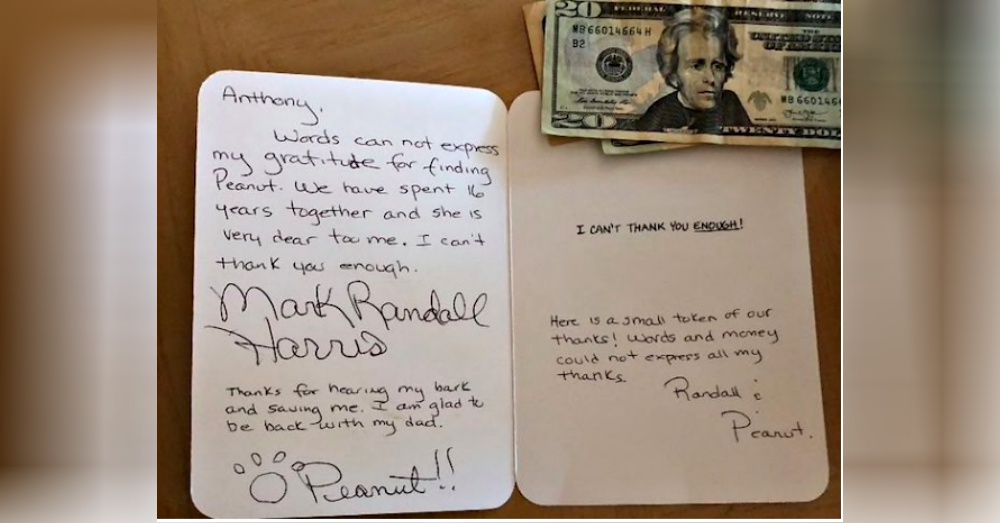 Anthony,
Words can not express
my gratitude for finding
Peanut. We have spent 16
years together and she is
very dear too me. I can't
thank you enough.
Mark Randall
Harris
Thanks for hearing my bark
and saving me. I am glad to
be back with my dad.
Peanut!!
20 FEDERAL RESERVE NOTE
MB66014664H
B2
20
TWENTY DOL
I CAN'T THANK YOU ENOUGH!
Here is a small token of our
thanks! Words and money
could not express all my
thanks.
Randall &
Peanut.